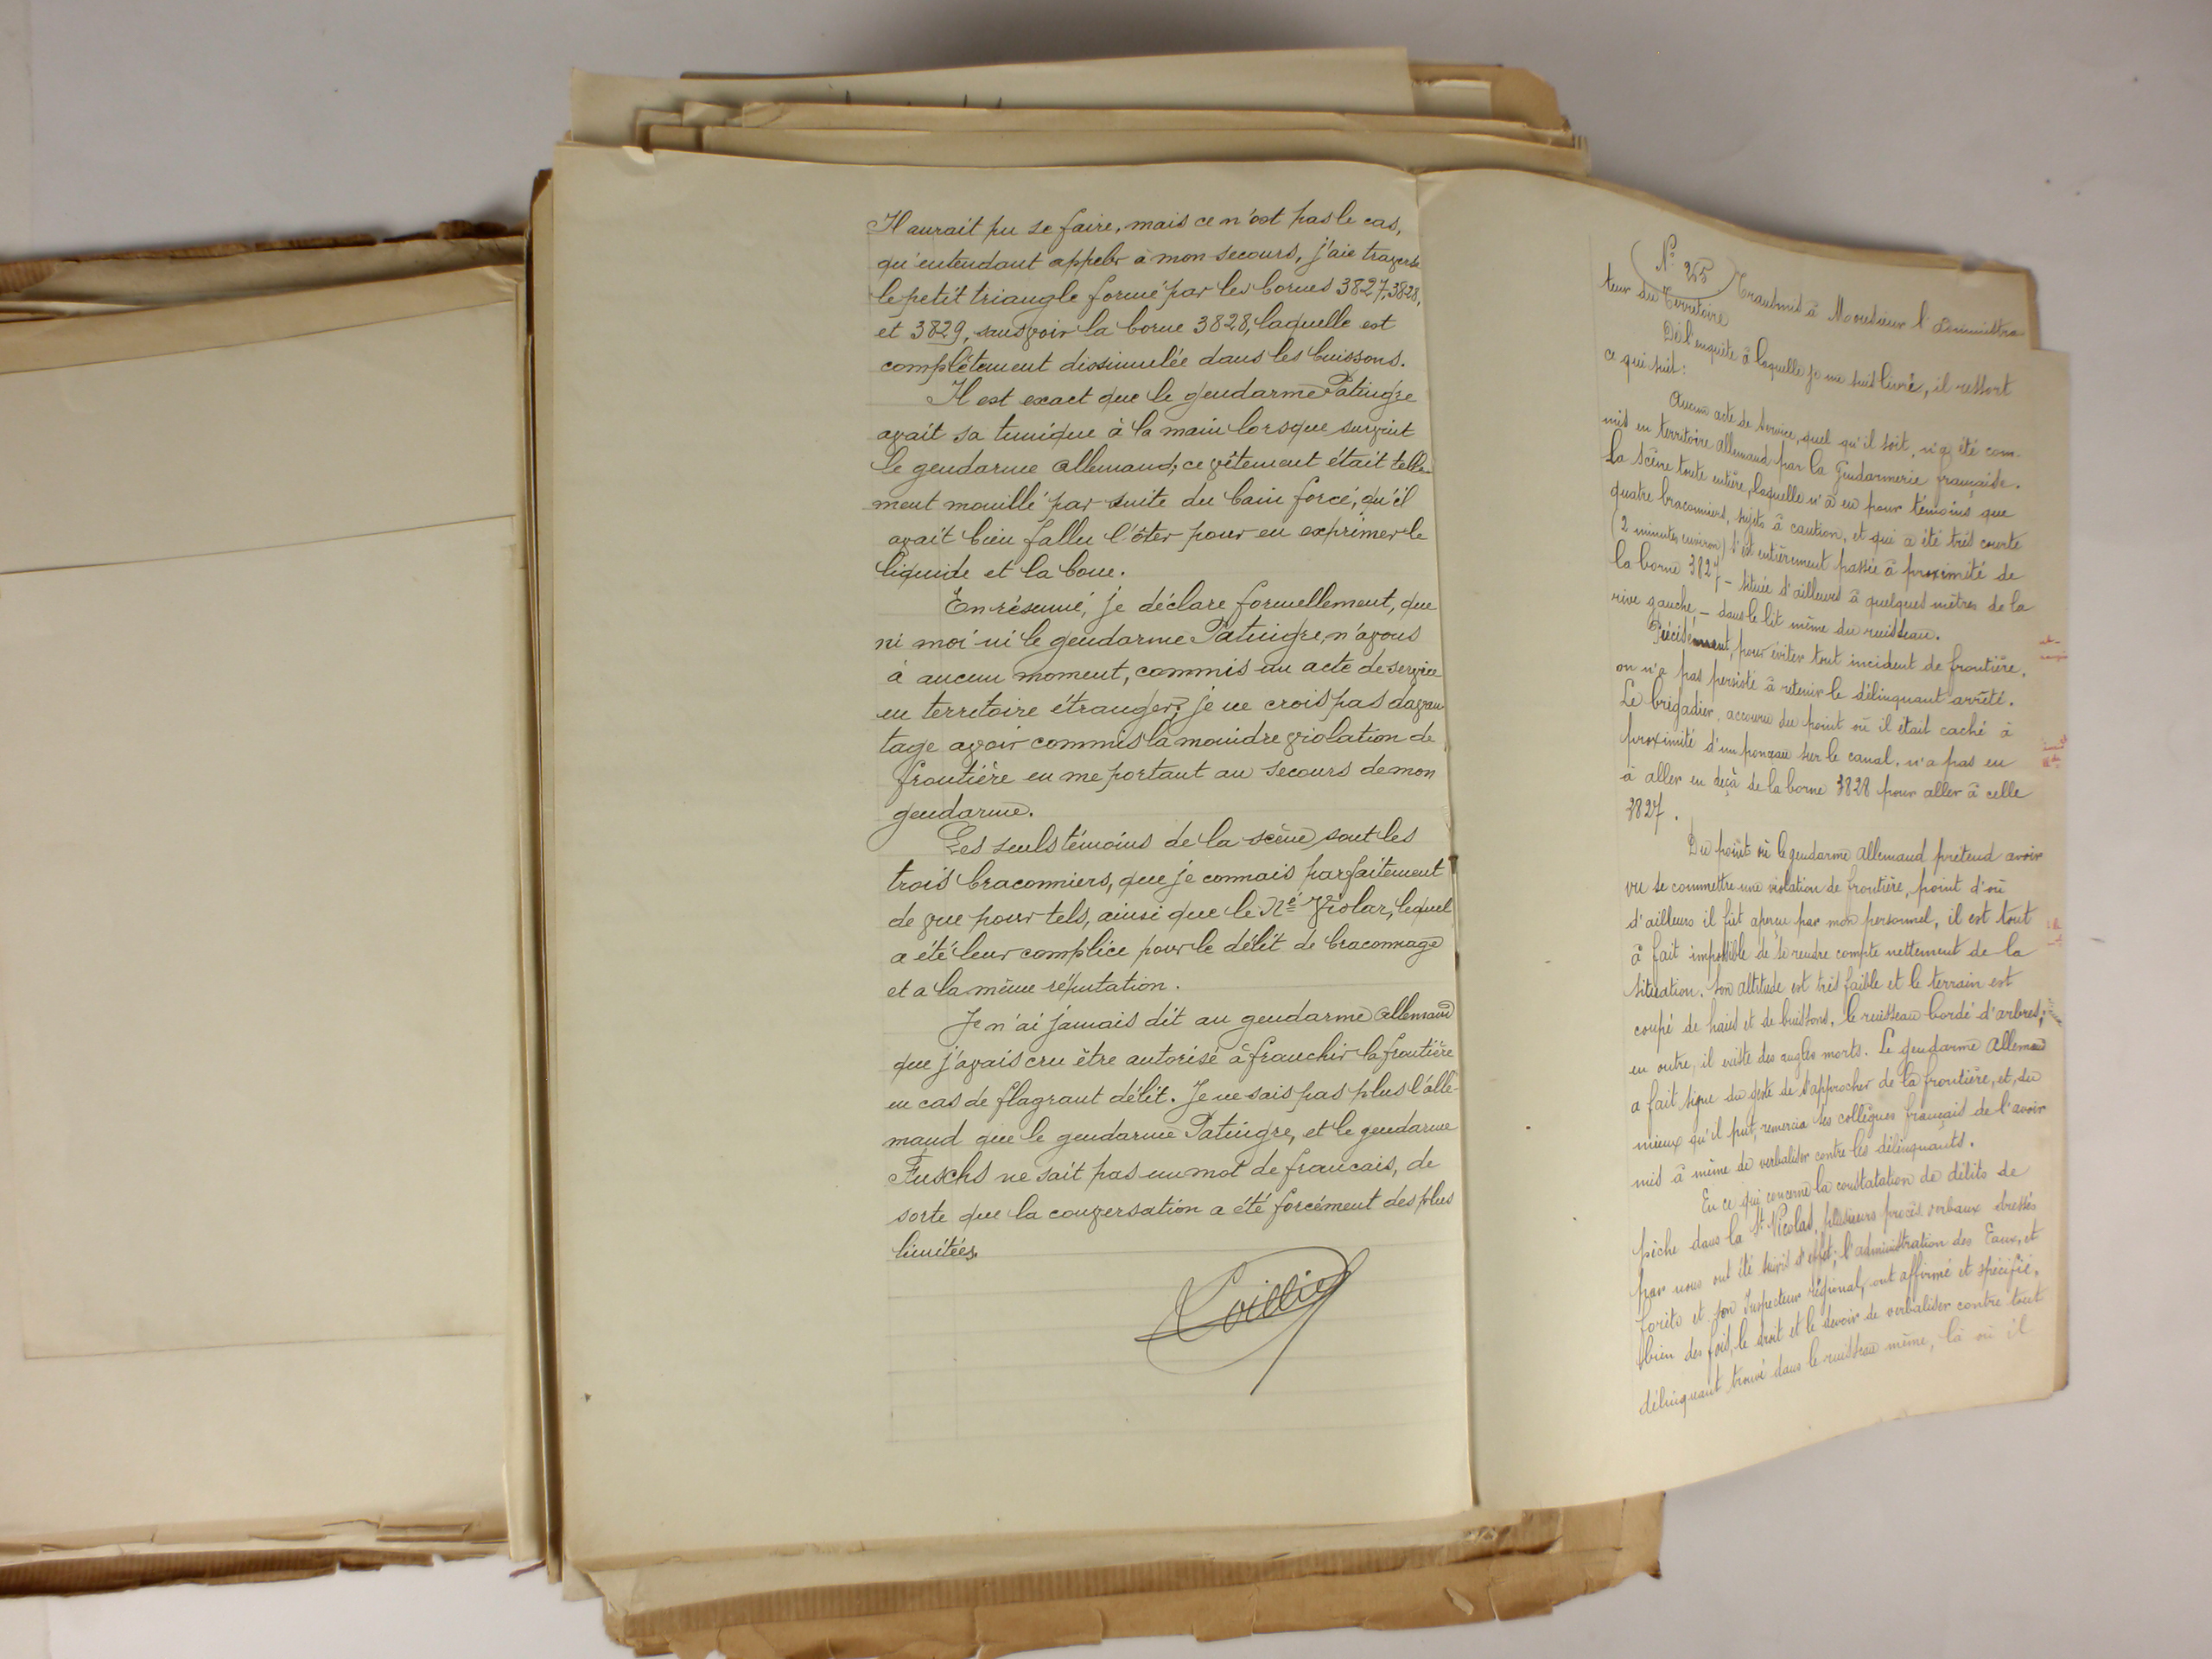 Il aurait pu se faire, mais ce n'est pas le cas,
qu'entendant appeler à mon secours, j'aie traversé
le petit triangle formé par les bornes 3827, 3828,
et 3829, sans voir la borne 3828, laquelle est
complètement dissimulée dans les buissons.
Il est exact que le gendarme Patingre
avait sa tunique à la main lorsque survint
le gendarme allemand; ce vêtement était telle-
ment mouillé par suite du bain forcé, qu'il
avait bien fallu l'ôter pour en exprimer le
liquide et la boue.
En résumé, je déclare formellement, que
ni moi ni le gendarme Patingre, n'avons
à aucun moment, commis un acte de service
en territoire étranger; je ne crois pas davan
tage avoir commis la moindre violation de
frontière en me portant au secours de mon
gendarme.
Les seuls témoins de la scène sont les
trois braconniers, que je connais parfaitement
de vue pour tels, ainsi que le Né Violar, lequel
a été leur complice pour le délit de braconnage
et a la même réputation.
Je n'ai jamais dit au gendarme allemand
que j'avais cru être autorisé à franchir la frontière
en cas de flagrant délit. Je ne sais pas plus l'alle-
mand que le gendarme Patingre, et le gendarme
Fuschs ne sait pas un mot de francais, de
sorte que la conversation a été forcément des plus
limitées.
N° 255
Transmis à Monsieur l'Administra-
teur du Territoire
De l'enquête à laquelle je me suis livré, il ressort
ce qui suit:
Aucun acte de service, quel qu'il soit, n'a été com-
mis en territoire allemand par la Gendarmerie française.
La scène toute entière, laquelle n'a eu pour témoins que
quatre braconniers, sujets à caution, et qui a été très courte
(2 minutes environ) s'est entièrement passée à proximité de
la borne 3827 - située d'ailleurs à quelques mètres de la
rive gauche, - dans le lit même du ruisseau.
Précisément, pour éviter tout incident de frontière,
on n'a pas persisté à retenir le délinquant arrêté.
Le brigadier, accouru du point où il était caché à
proximité d'un ponceau sur le canal, n'a pas eu
à aller en deçà de la borne 3828 pour aller à celle
3827.
Du point où le gendarme Allemand prétend avoir
vu se commettre une violation de frontière, point d'où
d'ailleurs il fut aperçu par mon personnel, il est tout
à fait impossible de se rendre compte nettement de la
situation. Son altitude est très faible et le terrain est
coupé de haies et de buissons, le ruisseau bordé d'arbres;
en outre, il existe des angles morts. Le gendarme Allemand
a fait signe du geste de s'approcher de la frontière, et, du
mieux qu'il put, remercia ses collègues français de l'avoir
mis à même de verbaliser contre les délinquants.
En ce qui concerne la constatation de délits de
pêche dans la St Nicolas, plusieurs procès verbaux dressés
par nous ont été suivis d'effet; l'administration des Eaux et
forêts et son Inspecteur régional, ont affirmé et spécifié,
bien des fois, le droit et le devoir de verbaliser contre tout
délinquant trouvé dans le ruisseau même, là où il